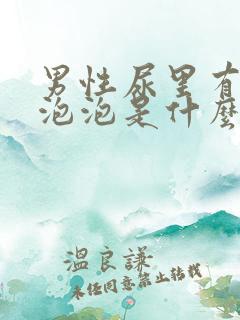 男性尿里有
泡泡是什麼
溫良謙
未經同意禁止轉載